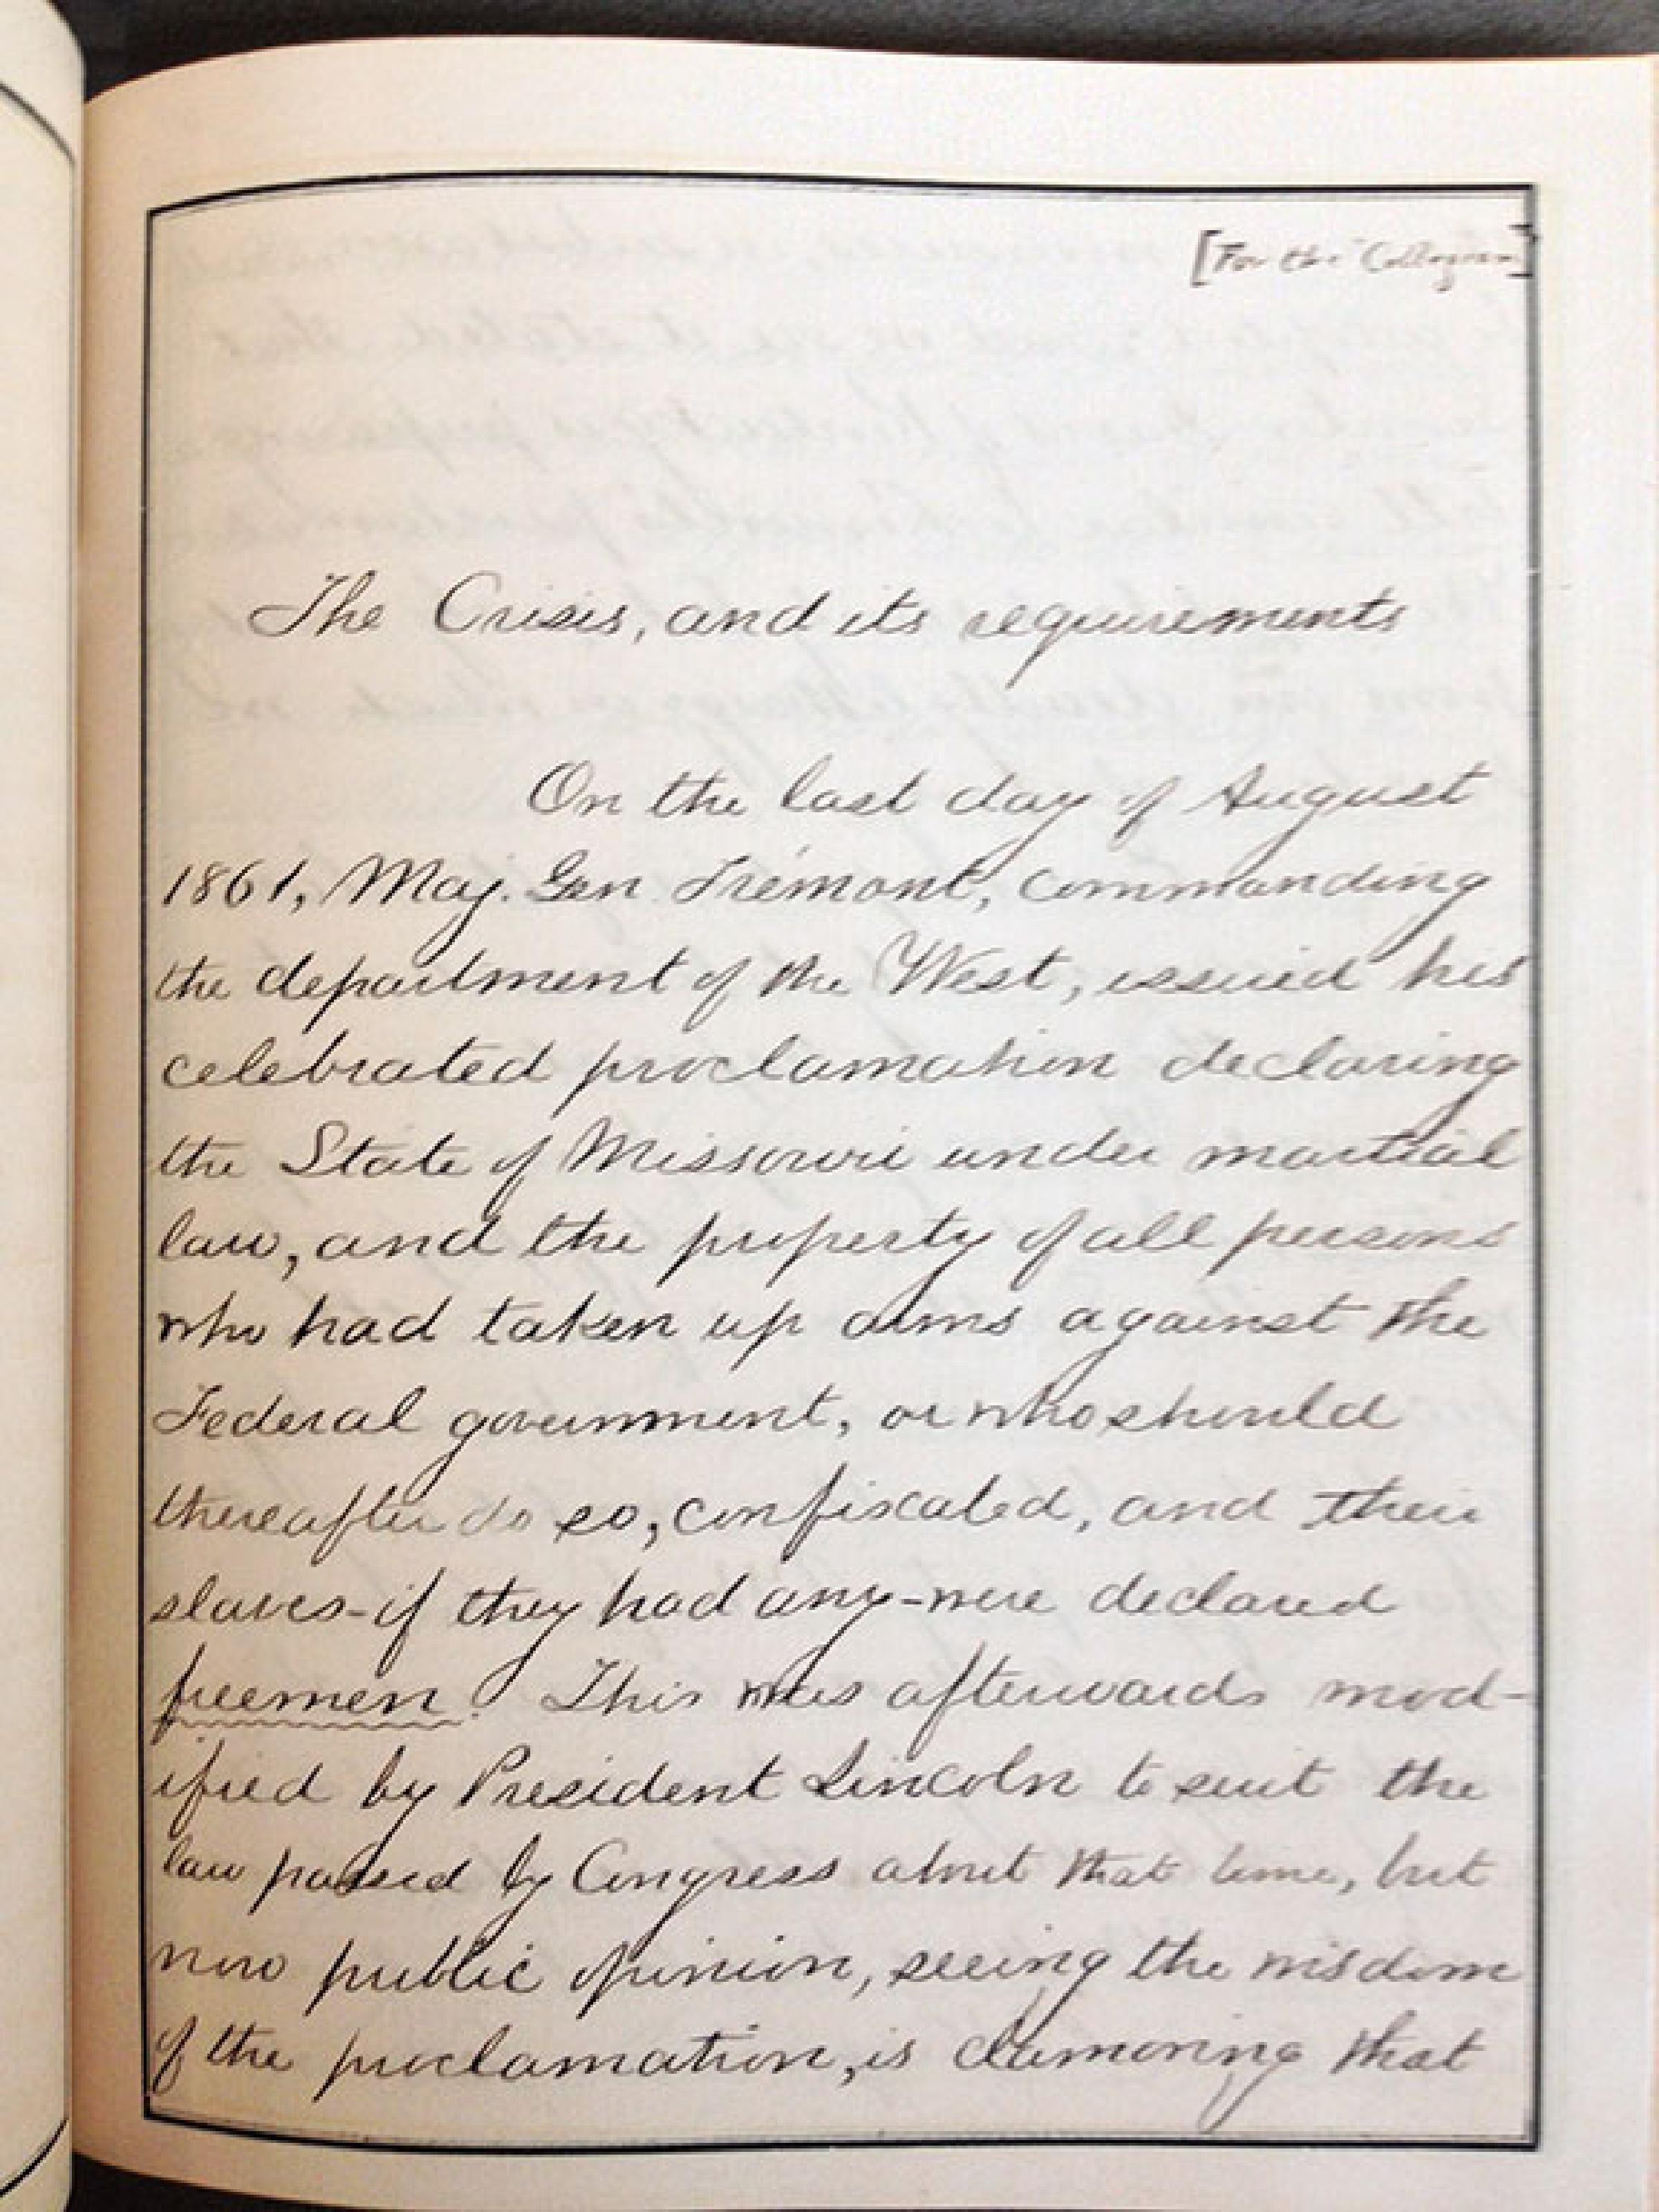 [For the "Collegian"]
The Crisis, and its requirements
On the last day of August
1861, Maj. Gen. Frémont, commanding
the department of the West, issued his
celebrated proclamation declaring
the State of Missouri under martial
law, and the property of all persons
who had taken up arms against the
Federal government, or who should
thereafter do so, confiscated, and their
slaves-if they had any-were declared
freemen. This was afterwards mod-
ified by President Lincoln to suit the
law passed by Congress about that time, but
now public opinion, seeing the wisdom
of the proclamation, is clamoring that